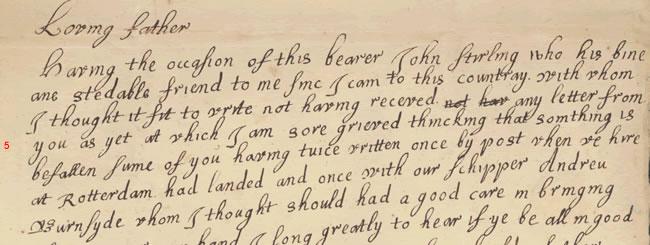 Loving father
Having the occasion of this bearer John Stirling who his bine
ane stedable friend to me sinc I cam to this countray with whom
I thought it fit to write not having receved not hav any letter from
5 you as yet at which I am sore grieved thincking that somthing is
befallen sume of you having tuice written once by post when we wire
at Rotterdam had landed and once with our schipper Andreu
Burnsyde whom I thought should had a good care in bringing
hand I long greatly to hear if ye be all in good